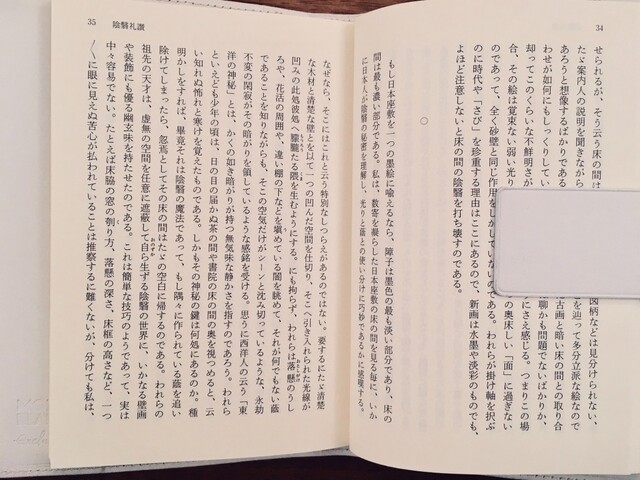 34
せられるが、そう云う床の間は 図柄などは見分けられない、
たゞ案内人の説明を聞きながら を辿って多分立派な絵なので
あろうと想像するばかりである 古画と暗い床の間との取り合
わせが如何にもしっくりしてい 聊かも問題でないばかりか、
却ってこのくらいな不鮮明さが にさえ感じる。つまりこの場
合、その絵は覚束ない弱い光り の奥床しい「面」に過ぎない
のであって、全く砂壁と同じ作用をしかしていないのである。われらが掛け軸を択ぶ
のに時代や「さび」を珍重する理由はこゝにあるので、新画は水墨や淡彩のものでも、
よほど注意しないと床の間の陰翳を打ち壊すのである。
○
もし日本座敷を一つの墨絵に喩えるなら、障子は墨色の最も淡い部分であり、床の
間は最も濃い部分である。私は、数寄を凝らした日本座敷の床の間を見る毎に、いか
に日本人が陰翳の秘密を理解し、光りと蔭との使い分けに巧妙であるかに感嘆する。
35 陰翳礼讃
なぜなら、そこにはこれと云う特別なしつらえがあるのではない。要するにたゞ清楚
な木材と清楚な壁とを以て一つの凹んだ空間を仕切り、そこへ引き入れられた光線が
凹みの此処彼処へ朦朧たる隈を生むようにする。にも拘らず、われらは落懸のうし
ろや、花活の周囲や、違い棚の下などを塡めている闇を眺めて、それが何でもない蔭
であることを知りながらも、そこの空気だけがシーンと沈み切っているような、永劫
不変の閑寂がその暗がりを領しているような感銘を受ける。思うに西洋人の云う「東
洋の神秘」とは、かくの如き暗がりが持つ無気味な静かさを指すのであろう。われら
といえども少年の頃は、日の目の届かぬ茶の間や書院の床の間の奥を視つめると、云
い知れぬ怖れと寒けを覚えたものである。しかもその神秘の鍵は何処にあるのか。種
明かしをすれば、畢竟それは陰翳の魔法であって、もし隅々に作られている蔭を追い
除けてしまったら、忽焉としてその床の間はたゞの空白に帰するのである。われらの
祖先の天才は、虚無の空間を任意に遮蔽して自ら生ずる陰翳の世界に、いかなる壁画
や装飾にも優る幽玄味を持たせたのである。これは簡単な技巧のようであって、実は
中々容易でない。たとえば床脇の窓の刳り方、落懸の深さ、床框の高さなど、一つ
〳〵に眼に見えぬ苦心が払われていることは推察するに難くないが、分けても私は、